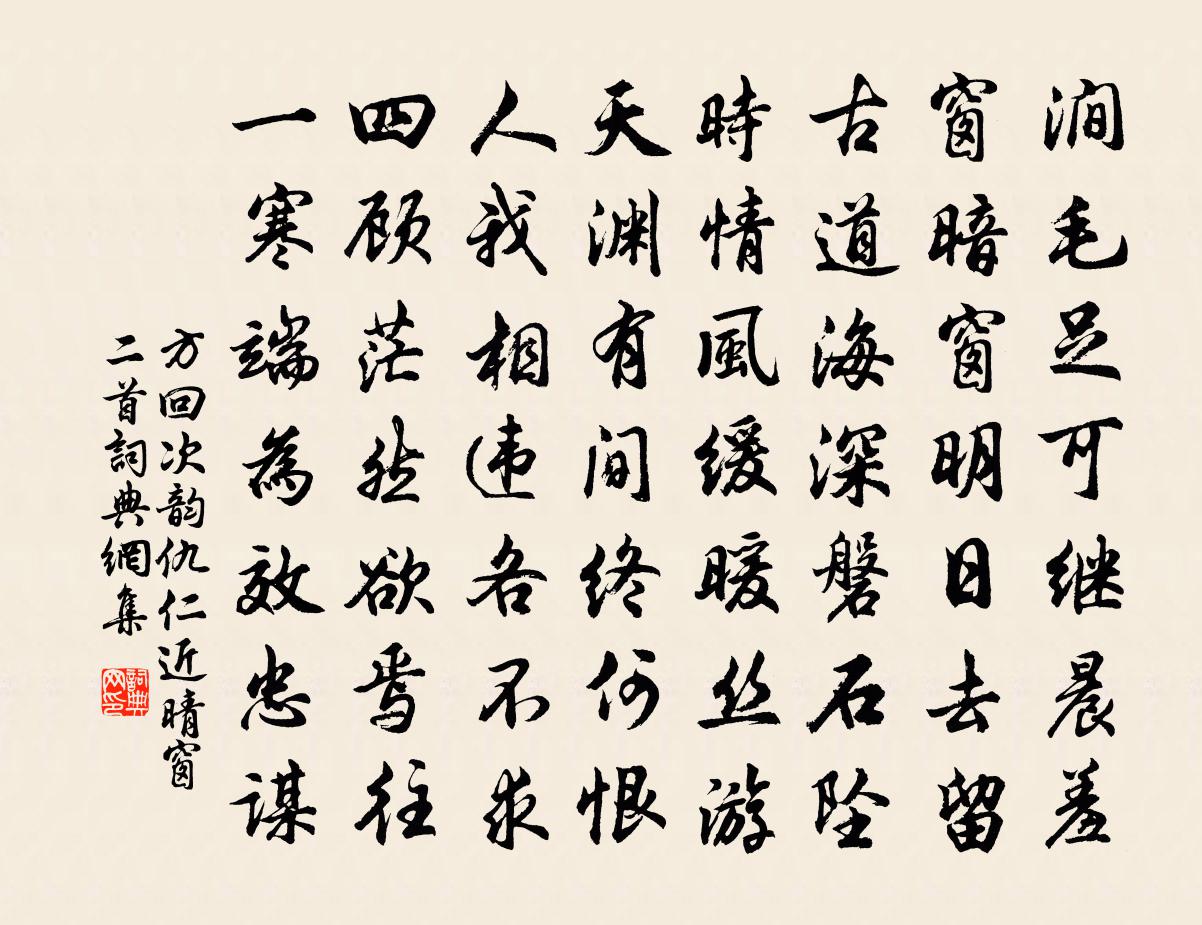 澗毛足可继晨羞
窗暗窗明日去留
古道海深磐石坠
時情風缓暖丝游
天渊有间终何恨
人我相违各不求
四顾茫然欲焉往
一寒端為效忠谋
方回次韵仇仁近晴窗
二首詞典網集
詞典
网印